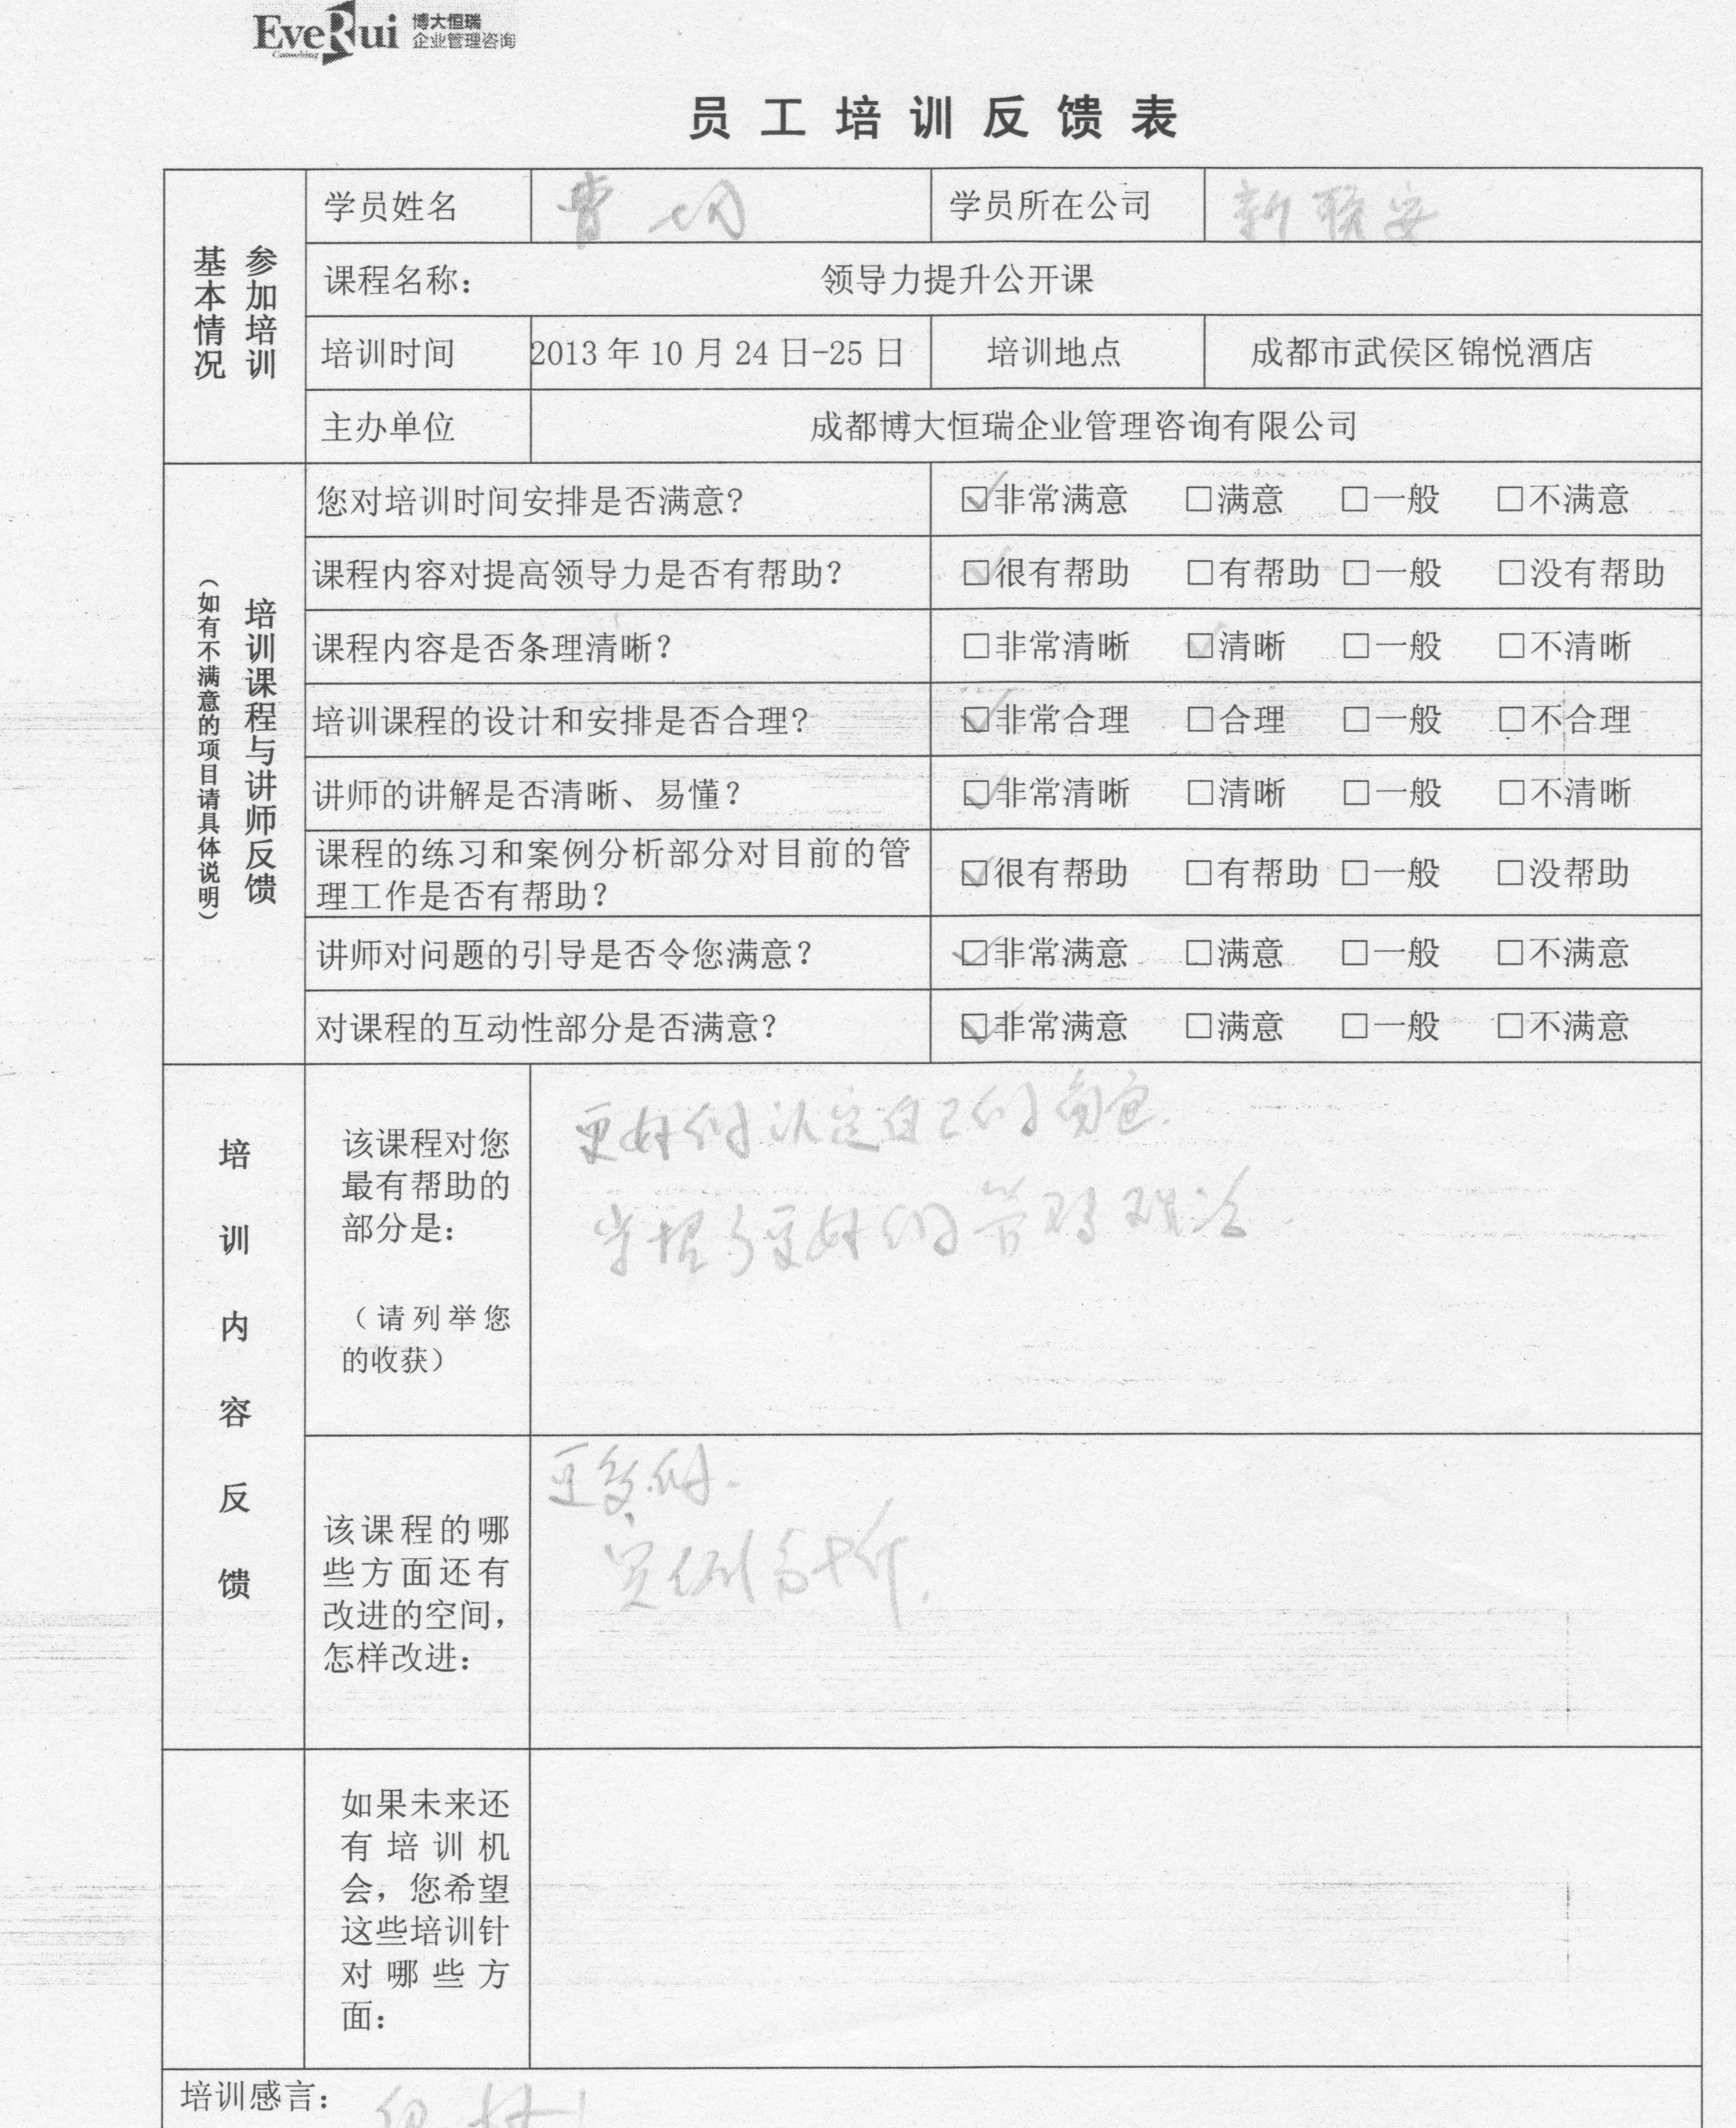 EveRui 博大恒瑞
Consulting 企业管理咨询
员工培训反馈表
参加培训
基本情况
学员姓名 曹 学员所在公司 新联安
课程名称： 领导力提升公开课
培训时间 2013 年 10 月 24 日-25 日 培训地点 成都市武侯区锦悦酒店
主办单位 成都博大恒瑞企业管理咨询有限公司
培训课程与讲师反馈
（如有不满意的项目请具体说明）
您对培训时间安排是否满意? ☑非常满意 □满意 □一般 □不满意
课程内容对提高领导力是否有帮助？ ☑很有帮助 □有帮助 □一般 □没有帮助
课程内容是否条理清晰？ □非常清晰 ☑清晰 □一般 □不清晰
培训课程的设计和安排是否合理? ☑非常合理 □合理 □一般 □不合理
讲师的讲解是否清晰、易懂？ ☑非常清晰 □清晰 □一般 □不清晰
课程的练习和案例分析部分对目前的管
理工作是否有帮助？ ☑很有帮助 □有帮助 □一般 □没帮助
讲师对问题的引导是否令您满意？ ☑非常满意 □满意 □一般 □不满意
对课程的互动性部分是否满意？ ☑非常满意 □满意 □一般 □不满意
培训内容反馈
该课程对您
最有帮助的
部分是：
（请列举您
的收获）
更好的认定自己的角色.
掌握了更好的管理理论
该课程的哪
些方面还有
改进的空间，
怎样改进：
更多的.
实例分析.
如果未来还
有培训机
会，您希望
这些培训针
对哪些方
面：
培训感言： 很好!